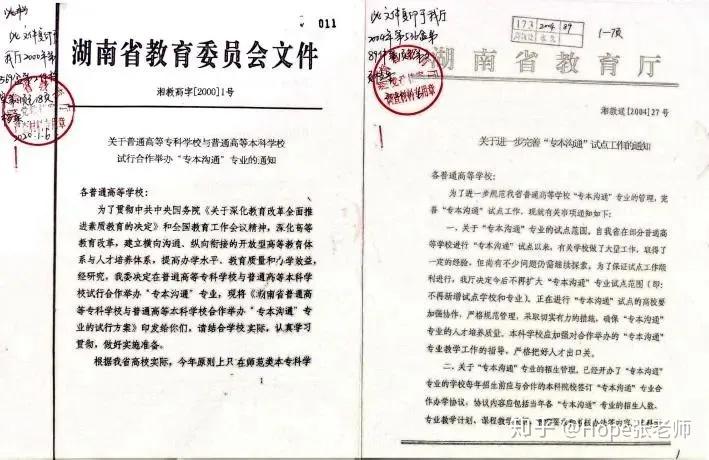 011
湖南省教育委员会文件
湘教高字[2000]1号
关于普通高等专科学校与普通高等本科学校
试行合作举办“专本沟通”专业的通知
各普通高等学校：
为了贯彻中共中央国务院《关于深化教育改革全面推
进素质教育的决定》和全国教育工作会议精神，深化高等
教育改革，建立横向沟通、纵向衔接的开放型高等教育体
系与人才培养体系，提高办学水平、教育质量和办学效益，
经研究，我委决定在普通高等专科学校与普通高等本科学
校试行合作举办“专本沟通”专业，现将《湖南省普通高
等专科学校与普通高等本科学校合作举办“专本沟通”专
业的试行方案》印发给你们，请结合学校实际，认真学习
贯彻，做好实施准备。
根据我省高校实际，今年原则上只在师范类本专科学
1
173 2004 89
1-7页
湖南省教育厅
湘教通[2004]27号
关于进一步完善“专本沟通”试点工作的通知
各普通高等学校：
为了进一步规范我省普通高等学校“专本沟通”专业的管理，完
善“专本沟通”试点工作，现就有关事项通知如下：
一、关于“专本沟通”专业的试点范围。自我省在部分普通高
等学校进行“专本沟通”试点以来，有关学校做了大量工作，取得了
一定的经验，但尚有不少问题仍需继续探索。为了保证试点工作顺
利进行，我厅决定今后不再扩大“专本沟通”专业试点范围（即：
不再新增试点学校和专业）。正在进行“专本沟通”试点的高校要
加强协作，严格规范管理，采取切实有力的措施，确保“专本沟通”
专业的人才培养质量。本科学校应加强对合作举办的“专本沟通”
专业教学工作的指导，严格把好人才出口关。
二、关于“专本沟通”专业的招生管理。已经开办了“专本沟通”
专业的学校每年招生前应与合作的本科院校签订“专本沟通”专业合
作办学协议，协议内容应包括当年各“专本沟通”专业的招生人数、
专业教学计划、课程教学
知乎 @Hope张老师
1